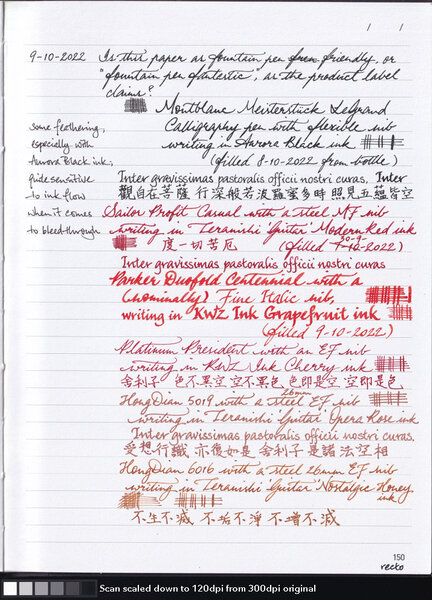 9-10-2022 Is this paper as fountain pen friendly, or
"fountain pen fantastic", as the product label
claims?
Montblanc Meisterstück LeGrand
Calligraphy pen with flexible nib
writing in Aurora Black ink
(filled 8-10-2022 from bottle)
some feathering,
especially with
Aurora Black ink;
quite sensitive
to ink flow
when it comes
to bleed-through
Inter gravissimas pastoralis officii nostri curas, Inter
觀自在菩薩 行深般若波羅蜜多時 照見五蘊皆空
Sailor Profit Casual with a steel MF nib
writing in Teranishi 'Guitar' Modern Red ink
度一切苦厄 (filled 30-9-2022)
Inter gravissimas pastoralis officii nostri curas
Parker Duofold Centennial with a
(nominally) Fine Italic nib,
writing in KWZ Ink Grapefruit ink
(filled 9-10-2022)
Platinum President with an EF nib
writing in KWZ Ink Cherry ink
舍利子 色不異空 空不異色 色即是空 空即是色
HongDian 5019 with a steel 26mm EF nib
writing in Teranishi 'Guitar' Opera Rose ink
Inter gravissimas pastoralis officii nostri curas.
受想行識 亦復如是 舍利子 是諸法空相
HongDian 6016 with a steel 26mm EF nib
writing in Teranishi 'Guitar' Nostalgic Honey
ink
不生不滅 不垢不淨 不增不減
150
recto
Scan scaled down to 120dpi from 300dpi original